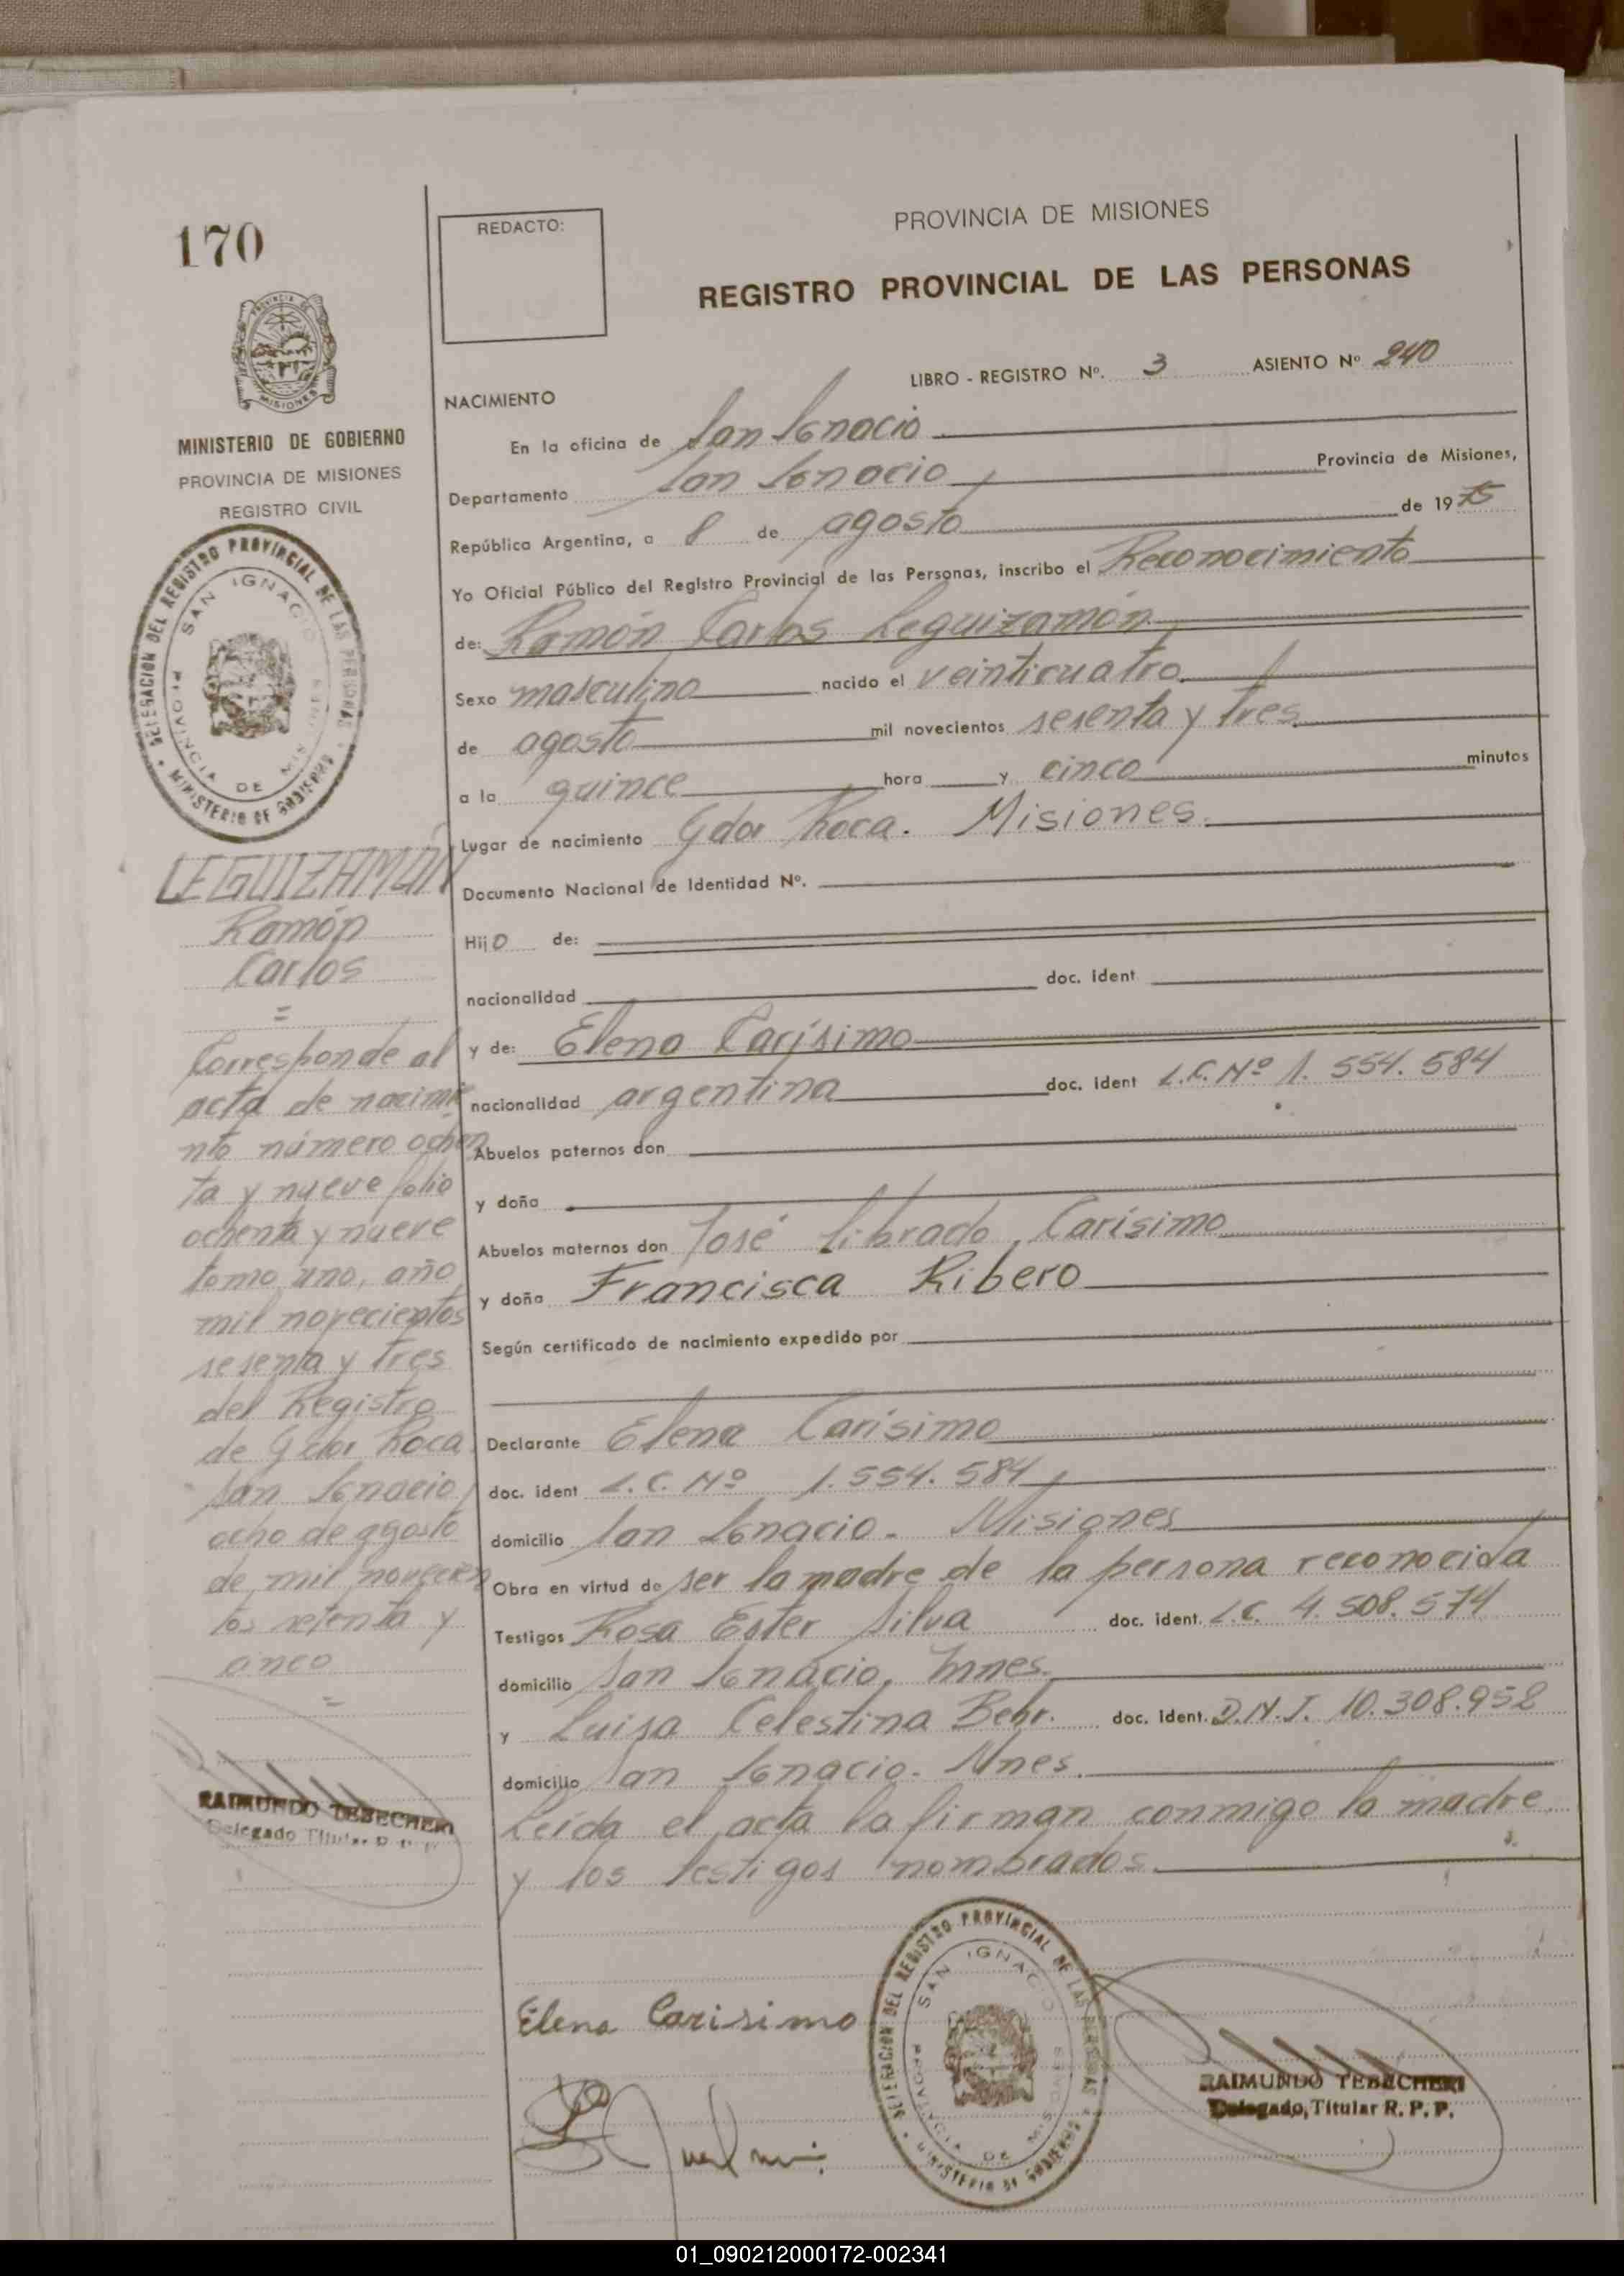 170
REDACTO:
PROVINCIA DE MISIONES
REGISTRO PROVINCIAL DE LAS PERSONAS
LIBRO - REGISTRO Nº. 3 ASIENTO Nº 240
NACIMIENTO
En la oficina de San Ignacio
Departamento San Ignacio, Provincia de Misiones,
República Argentina, a 8 de agosto de 1975
Yo Oficial Público del Registro Provincial de las Personas, inscribo el Reconocimiento
de: Ramón Carlos Leguizamón
Sexo masculino nacido el veinticuatro
de agosto mil novecientos sesenta y tres
a la quince hora y cinco minutos
Lugar de nacimiento Gdor Roca. Misiones.
Documento Nacional de Identidad Nº.
Hijo de:
nacionalidad doc. ident
y de: Elena Carísimo
nacionalidad argentina doc. ident L.C. Nº 1.554.584
Abuelos paternos don
y doña
Abuelos maternos don José Librado Carísimo
y doña Francisca Ribero
Según certificado de nacimiento expedido por
Declarante Elena Carísimo
doc. ident L.C. Nº 1.554.584
domicilio San Ignacio. Misiones
Obra en virtud de ser la madre de la persona reconocida
Testigos Rosa Ester Silva doc. ident. L.C. 4.508.574
domicilio San Ignacio, Mnes.
y Luisa Celestina Behr. doc. ident. D.N.I. 10.308.952
domicilio San Ignacio. Mnes.
Leída el acta la firman conmigo la madre
y los testigos nombrados.
Elena Carisimo
DELEGACION DEL REGISTRO PROVINCIAL DE LAS PERSONAS
SAN IGNACIO
PROVINCIA DE MISIONES
MINISTERIO DE GOBIERNO
RAIMUNDO TEBECHERI
Delegado Titular R. P. P.
PROVINCIA DE
MISIONES
MINISTERIO DE GOBIERNO
PROVINCIA DE MISIONES
REGISTRO CIVIL
DELEGACION DEL REGISTRO PROVINCIAL DE LAS PERSONAS
SAN IGNACIO
PROVINCIA DE MISIONES
MINISTERIO DE GOBIERNO
LEGUIZAMÓN
Ramón
Carlos
=
Corresponde al
acta de nacimie
nto número ochen
ta y nueve folio
ochenta y nueve
tomo uno, año
mil novecientos
sesenta y tres
del Registro
de Gdor Roca
San Ignacio,
ocho de agosto
de mil novecien
tos setenta y
cinco
=
RAIMUNDO TEBECHERI
Delegado Titular R. P. P.
01_090212000172-002341